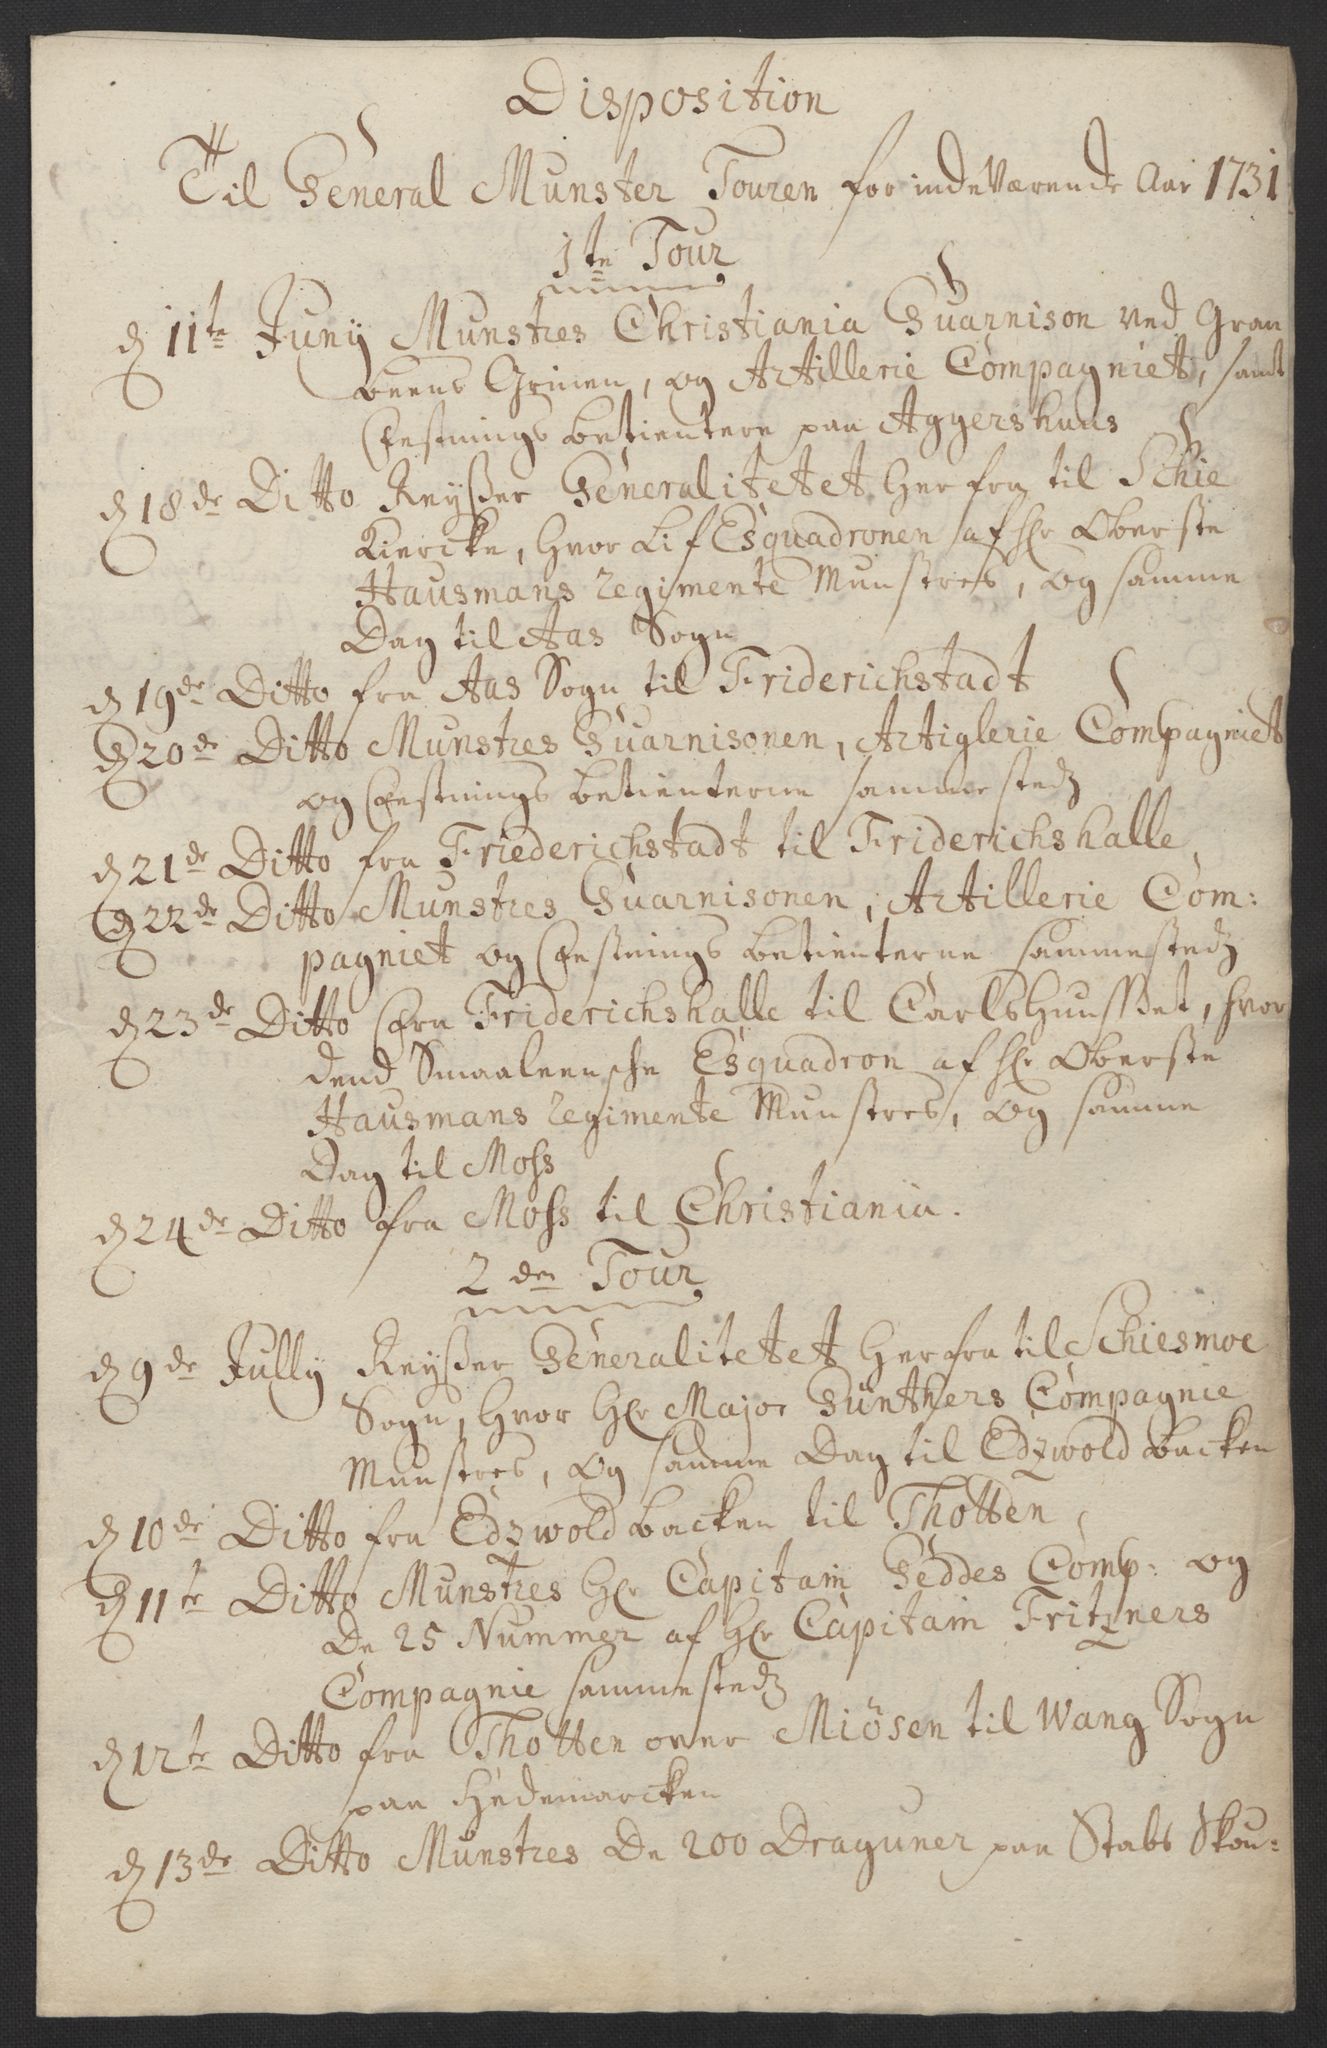 Disposition
Til General Munster Touren for indeværende Aar 1731
1te Tour
d 11te Junij Munstres Christiania Guarnison ved Gran
beens Grinen, og Artillerie Compagniet, samt
Fæstnings betientere paa Aggershuus
d 18de Ditto Reyßer Generalitetet her fra til Schie
Kiercke, hvor Lif Esquadronen af Hr Oberste
Hausmans Regimente Munstres, og samme
Dag til Aas Sogn
d 19de Ditto fra Aas Sogn til Friderichstadt
d 20de Ditto Munstres Guarnisonen, Artiglerie Compagniet
og Fæstnings betienterne sammestedz
d 21de Ditto fra Friederichstadt til Friderichshalle
d 22de Ditto Munstres Guarnisonen, Artillerie Com:
pagniet og Fæstnings betienterne sammestedz
d 23de Ditto Fra Friderichshalle til Carlshuusset, hvor
dend Smaaleensche Esquadron af Hr Oberste
Hausmans Regimente Munstres, og samme
Dag til Moss
d 24de Ditto fra Moss til Christiania.
2den Tour
d 9de Jully Reyßer Generalitetet her fra til Schiesmoe
Sogn, hvor Hr Major Günthers Compagnie
Munstres, og samme Dag til Edzwold backen
d 10de Ditto fra Edzwold backen til Thotten
d 11te Ditto Munstres Hr Capitain Geddes Comp: og
De 25 Nummer af Hr Capitain Fritzners
Compagnie sammestedz
d 12te Ditto fra Thotten over Miösen til Wang Sogn
paa Hedemarcken
d 13de Ditto Munstres De 200 Draguner paa Stabs Skou: